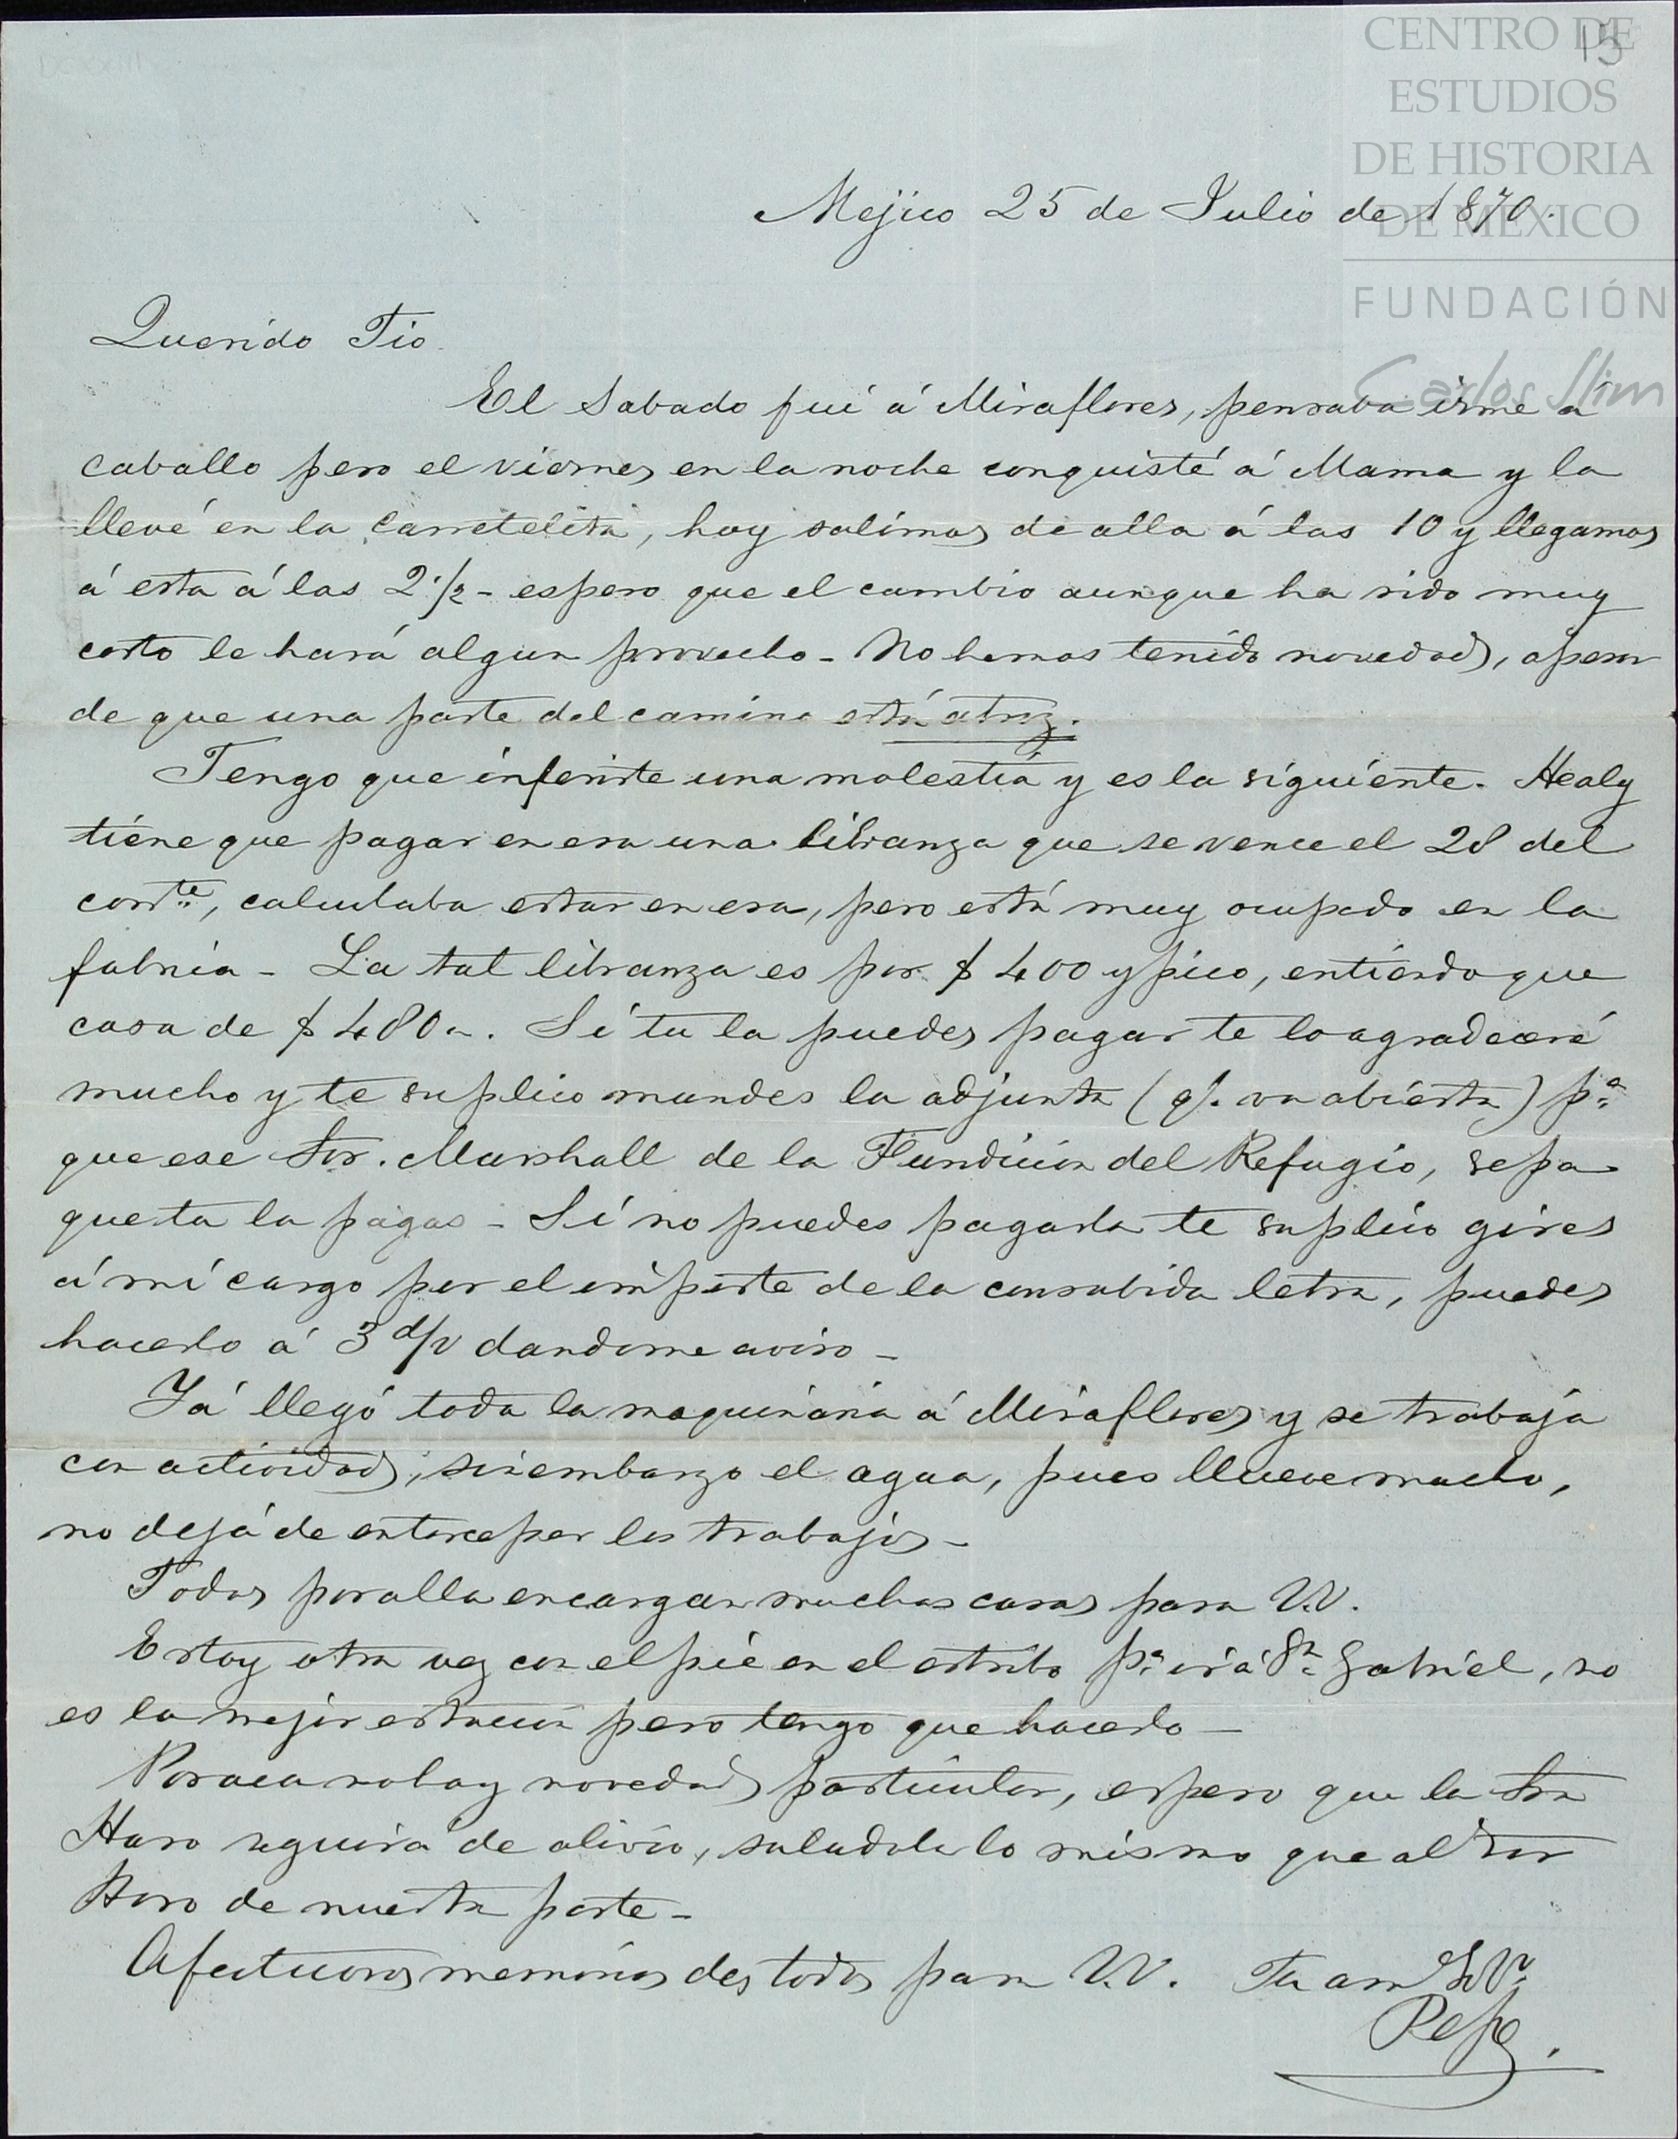 15
CENTRO DE
ESTUDIOS
DE HISTORIA
DE MÉXICO
FUNDACIÓN
Carlos Slim
Mejico 25 de Julio de 1870.
Querido Tio.
El Sabado fuí á Miraflores, pensaba irme a
caballo pero el viernes en la noche conquisté á Mama y la
llevé en la carretelita, hoy salimos de alla á las 10 y llegamos
á esta á las 2 1/2 - espero que el cambio aunque ha sido muy
corto le hará algun provecho - No hemos tenido novedad, apesar
de que una parte del camino está atroz.
Tengo que inferirte una molestia y es la siguiente. Healy
tiene que pagar en esa una libranza que se vence el 28 del
corrte, calculaba estar en esa, pero está muy ocupado en la
fabrica - La tal libranza es por $ 400 y pico, entiendo que
cosa de $ 480 -. Si tu la puedes pagar te lo agradeceré
mucho y te suplico mandes la adjunta (q. va abierta) pa
que ese Sor. Marshall de la Fundicion del Refugio, sepa
que tu la pagas - Si no puedes pagarla te suplico gires
á mi cargo por el importe de la consabida letra, puedes
hacerlo á 3 d/v dandome aviso -
Yá llegó toda la maquinaria á Miraflores y se trabaja
con actividad, sinembargo el agua, pues llueve mucho,
no deja de entorceper los trabajos -
Todos por alla encargan muchas cosas para V.V.
Estoy otra vez con el pié en el estribo pa ir á Sn Gabriel, no
es la mejor estacion pero tengo que hacerlo -
Por aca no hay novedad particular, espero que la Sra
Haro seguirá de alivio, saludala lo mismo que al Sor
Haro de nuestra parte -
Afectuosas memorias de todos para V.V. Tu am
Pepe.